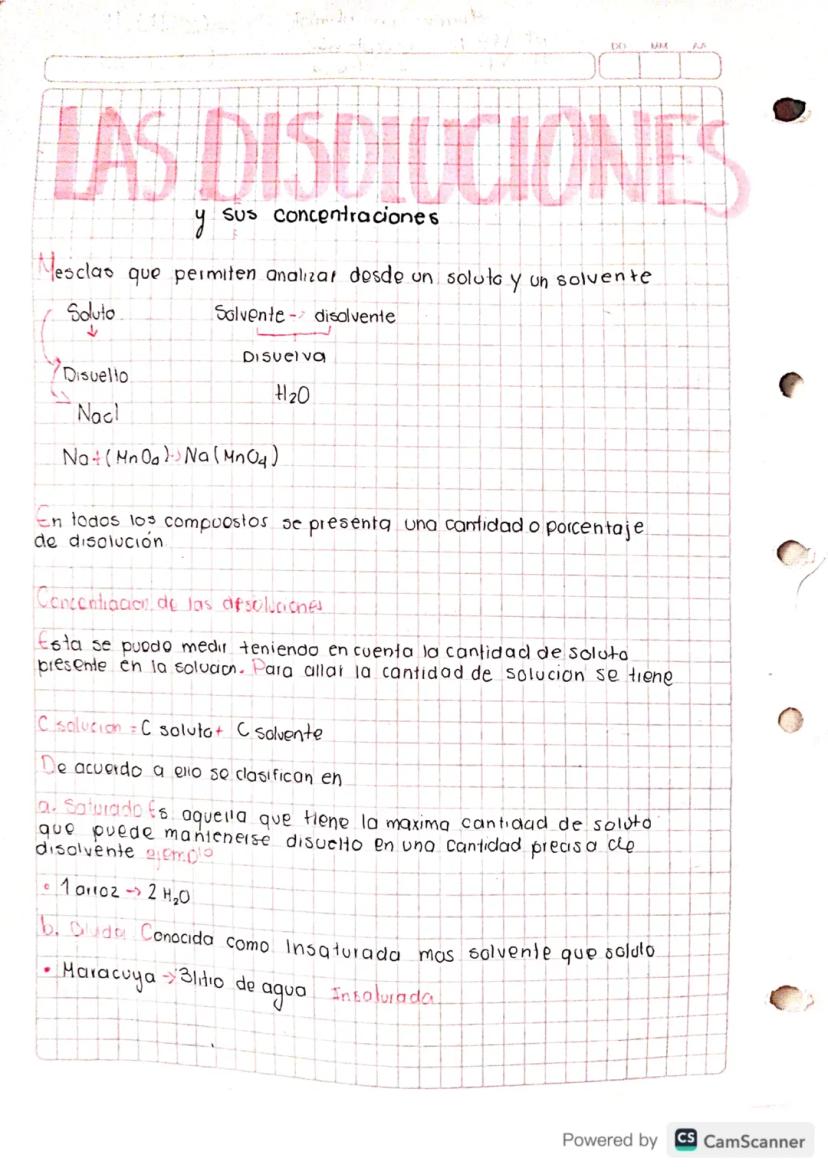 DD MM AA
LAS DISOLUCIONES
y sus concentraciones
Mesclas que permiten analizar desde un soluto y un solvente
Soluto Solvente -> disolvente
Disuelva
Disuelto
H2O
Nacl
Na + (MnO4) -> Na (MnO4)
En todos los compuestos se presenta una cantidad o porcentaje
de disolución
Concentracion de las disoluciones
Esta se puede medir teniendo en cuenta la cantidad de soluto
presente en la solucion. Para allar la cantidad de solucion se tiene
C solucion = C soluto + C solvente
De acuerdo a ello se clasifican en
a. Saturado Es aquella que tiene la maxima cantidad de soluto
que puede mantenerse disuelto en una cantidad precisa de
disolvente ejemplo
• 1 arroz -> 2 H2O
b. Diluda Conocida como Insaturada mas solvente que soluto
• Maracuya -> 3 litro de agua Insaturada
Powered by CS CamScanner